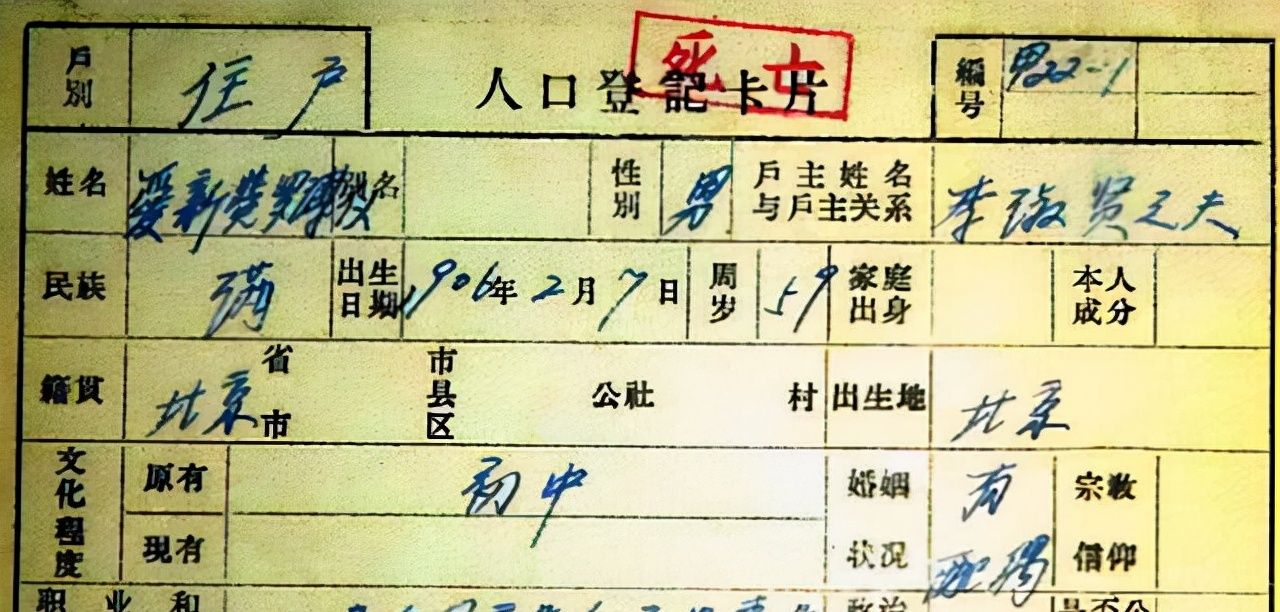 死亡
戶別 住户 人口登記卡片 編号 男22-1
姓名 爱新觉羅 别名 性別 男 戶主姓名与戶主关系 李淑贤之夫
民族 满 出生日期 1906年2月7日 周岁 59 家庭出身 本人成分
籍贯 北京 省市 市县区 公社 村 出生地 北京
文化程度 原有 初中 婚姻状况 有配偶 宗教信仰
現有
职业和 政治 是否公